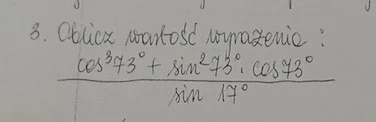 3. Oblicz wartość wyrażenia :
cos³73° + sin²73° · cos73°
sin 17°